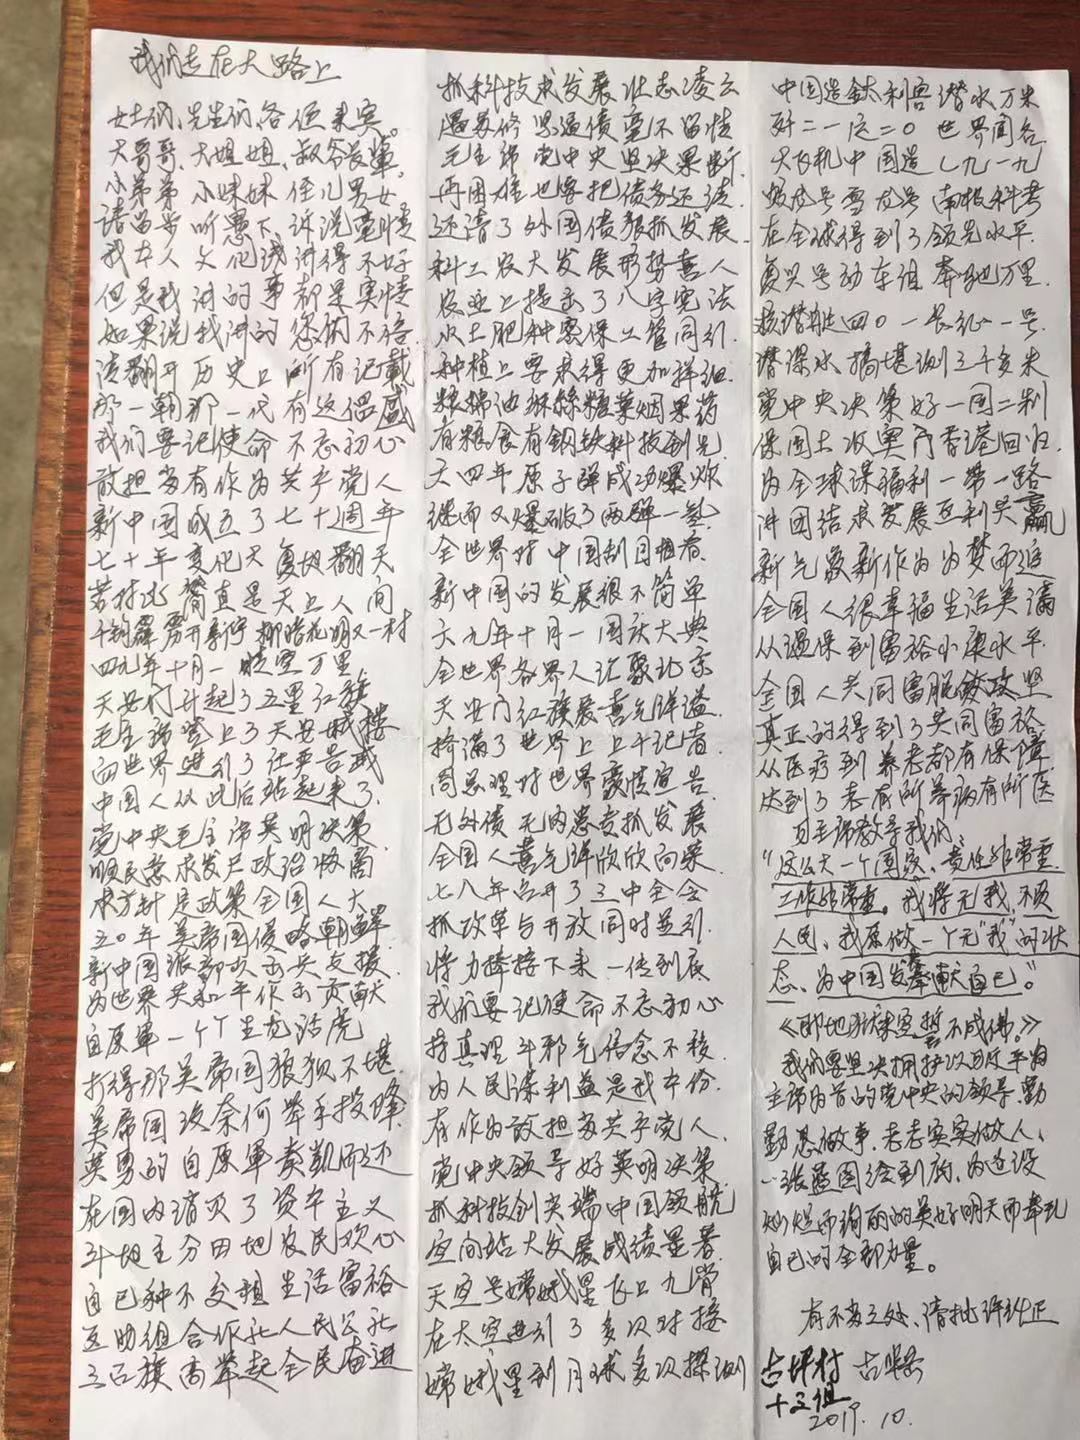 我们走在大路上
女士们、先生们、各位来宾。
大哥哥、大姐姐、叔爷长辈,
小弟弟 小妹妹 侄儿男女
请留步 听愚下、诉说衷情
我本人 文化浅 讲得不好
但是我 讲的事 都是实情
如果说 我讲的 您们不信
请翻开 历史上 所有记载
那一朝 那一代 有这偶感
我们要 记使命 不忘初心
敢担当 有作为 共产党人
新中国 成立了 七十週年
七十年 变化大 复地翻天
若对比 简直是 天上人间
千钧霹雳开新宇 柳暗花明又一村
四九年 十月一 晴空万里
天安门 升起了 五星红旗
毛主席 登上了 天安城楼
向世界 进行了 庄严告诫
中国人 从此后 站起来了.
党中央 毛主席 英明决策
顺民意 求发展 政治
求方针 定政策 全国人大
五0年 美帝国 侵略朝鲜
新中国 派部队 去支援.
为世界 共和平 作出贡献
自愿军 一个个 生龙活虎
打得那 美帝国 狼狈不堪.
美帝国 没奈何 举手投降
英勇的 自愿军 奏凯而还
在国内 消灭了 资本主义
斗地主 分田地 农民欢心
自己种 不交租 生活富裕
互助组 合作社 人民公社
三红旗 高举起 全民奋进
抓科技 求发展 壮志凌云
遇苏修 紧逼债 毫不留情
毛主席 党中央 坚决果断.
再困难 也要把 债务还清.
还清了 外国债 狠抓发展.
科工农 大发展 形势喜人
农业上 提出了 八字宪法
水土肥 种密保 工管同行.
种植上 要求得 更加详细.
粮棉油 麻丝糖 菜烟果药
有粮食 有钢铁 科技创先.
六四年 原子弹 成功爆炸
继而又 爆破了 两弹一氢
全世界 对中国 刮目相看.
新中国 的发展 很不简单
六九年 十月一 国庆大典
全世界 各界人 汇聚北京
天安门 红旗展 喜气洋溢
挤满了 世界上 上千记者.
周总理 对世界 豪情宣告.
无外债 无内患 专抓发展
全国人 喜气洋 欣欣向荣
七八年 召开了 三中全会
抓改革 与开放 同时并行.
将力棒 接下来 一传到底
我们要 记使命 不忘初心
持真理 斗邪气 信念不移
为人民 谋利益 是我本份
有作为 敢担当 共产党人.
党中央 领导好 英明决策
抓科技 创尖端 中国领航
空间站 大发展 成绩显著.
天宫号 嫦娥星 飞上九霄
在太空 进行了 多次对接
嫦娥星 到月球 多次探测
中国造 钛利兽 潜水万米
歼二一 运二0 世界闻名
大飞机 中国造 C九一九
蛟龙号 雪龙号 南极科考
在全球 得到了 领先水平.
复兴号 动车组 奔驰万里.
核潜艇 四0一 长征一号.
潜深水 搞堪测 三千多米
党中央 决策好 一国二制
保国土 收奥门 香港回归.
为全球 谋福利 一带一路
讲团结 求发展 互利共赢
新气象 新作为 为梦而追
全国人 很幸福 生活美满
从温保 到富裕 小康水平.
全国人 共同富 脱贫攻坚
真正的 得到了 共同富裕
从医疗 到养老 都有保障.
达到了 老有所养 病有所医
习主席教导我们
“这么大一个国家、责任非常重.
工作非常重。我将无我、不负
人民、我愿做一个无“我”的状
态、为中国发展奉献自己”。
《那地狱未空誓不成佛。》
我们要坚决拥护以习近平为
主席为首的党中央的领导.勤
勤恳恳做事、老老实实做人、
一张蓝图绘到底、为建设
灿烂而绚丽的美好明天而奉献
自己的全部力量。
有不当之处、请批评纠正
古坪村
十三组
2019.10.